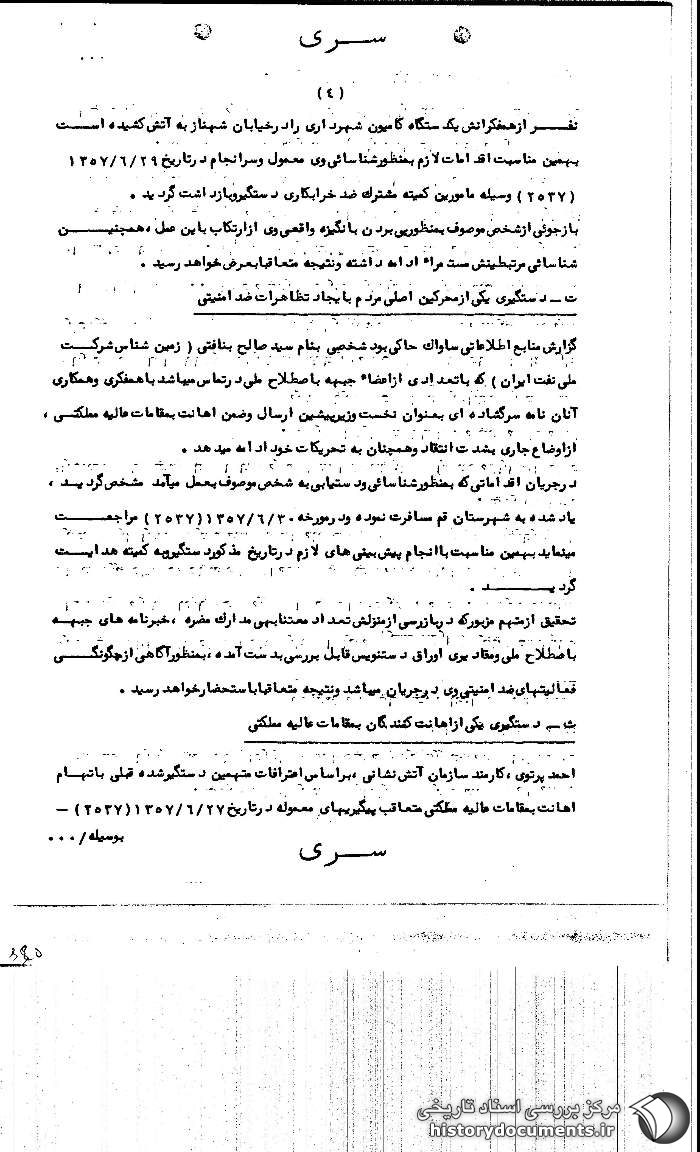 سری
...
(٤)
نفر از همفکرانش یکدستگاه کامیون شهرداری را در خیابان شهناز به آتش کشیده است
بهمین مناسبت اقدامات لازم بمنظور شناسائی وی معمول و سرانجام در تاریخ ۱۳۵۷/۶/۲۹
(۲۵۳۷) وسیله مامورین کمیته مشترک ضد خرابکاری دستگیر و بازداشت گردید .
بازجوئی از شخص موصوف بمنظور پی بردن با نگیزه واقعی وی از ارتکاب باین عمل ، همچنین
شناسائی مرتبطینش مستمراً ادامه داشته و نتیجه متعاقبا بعرض خواهد رسید .
ت ـ دستگیری یکی از محرکین اصلی مردم با یجاد تظاهرات ضد امنیتی
گزارش منابع اطلاعاتی ساواک حاکی بود شخصی بنام سید صالح بنافتی ( زمین شناس شرکت
ملی نفت ایران ) که با تعدادی از اعضاء جبهه باصطلاح ملی در تماس میباشد با همفکری و همکاری
آنان نامه سرگشاده ای بعنوان نخست وزیر پیشین ارسال وضمن اهانت بمقامات عالیه مملکتی ،
از اوضاع جاری بشدت انتقاد و همچنان به تحریکات خود ادامه میدهد .
در جریان اقداماتی که بمنظور شناسائی و دستیابی به شخص موصوف بعمل میآمد مشخص گردید ،
یاد شده به شهرستان قم مسافرت نموده و در مورخه ۱۳۵۷/۶/۳۰ (۲۵۳۷) مراجعت
مینماید بهمین مناسبت با انجام پیش بینی های لازم در تاریخ مذکور دستگیر و به کمیته هدایت
گردید .
تحقیق از متهم مزبور که در بازرسی از منزلش تعداد معتنابهی مدارک مضره ، خبرنامه های جبهه
باصطلاح ملی و مقادیری اوراق دستنویس قابل بررسی بدست آمده ، بمنظور آگاهی از چگونگی
فعالیتهای ضد امنیتی وی در جریان میباشد و نتیجه متعاقبا باستحضار خواهد رسید .
ث ـ دستگیری یکی از اهانت کنندگان بمقامات عالیه مملکتی
احمد پرتوی ، کارمند سازمان آتش نشانی ، براساس اعترافات متهمین دستگیر شده قبلی باتهام
اهانت بمقامات عالیه مملکتی متعاقب پیگیریهای معموله در تاریخ ۱۳۵۷/۶/۲۷ (۲۵۳۷) ـ
بوسیله /...
سری
مرکز بررسی اسناد تاریخی
historydocuments.ir